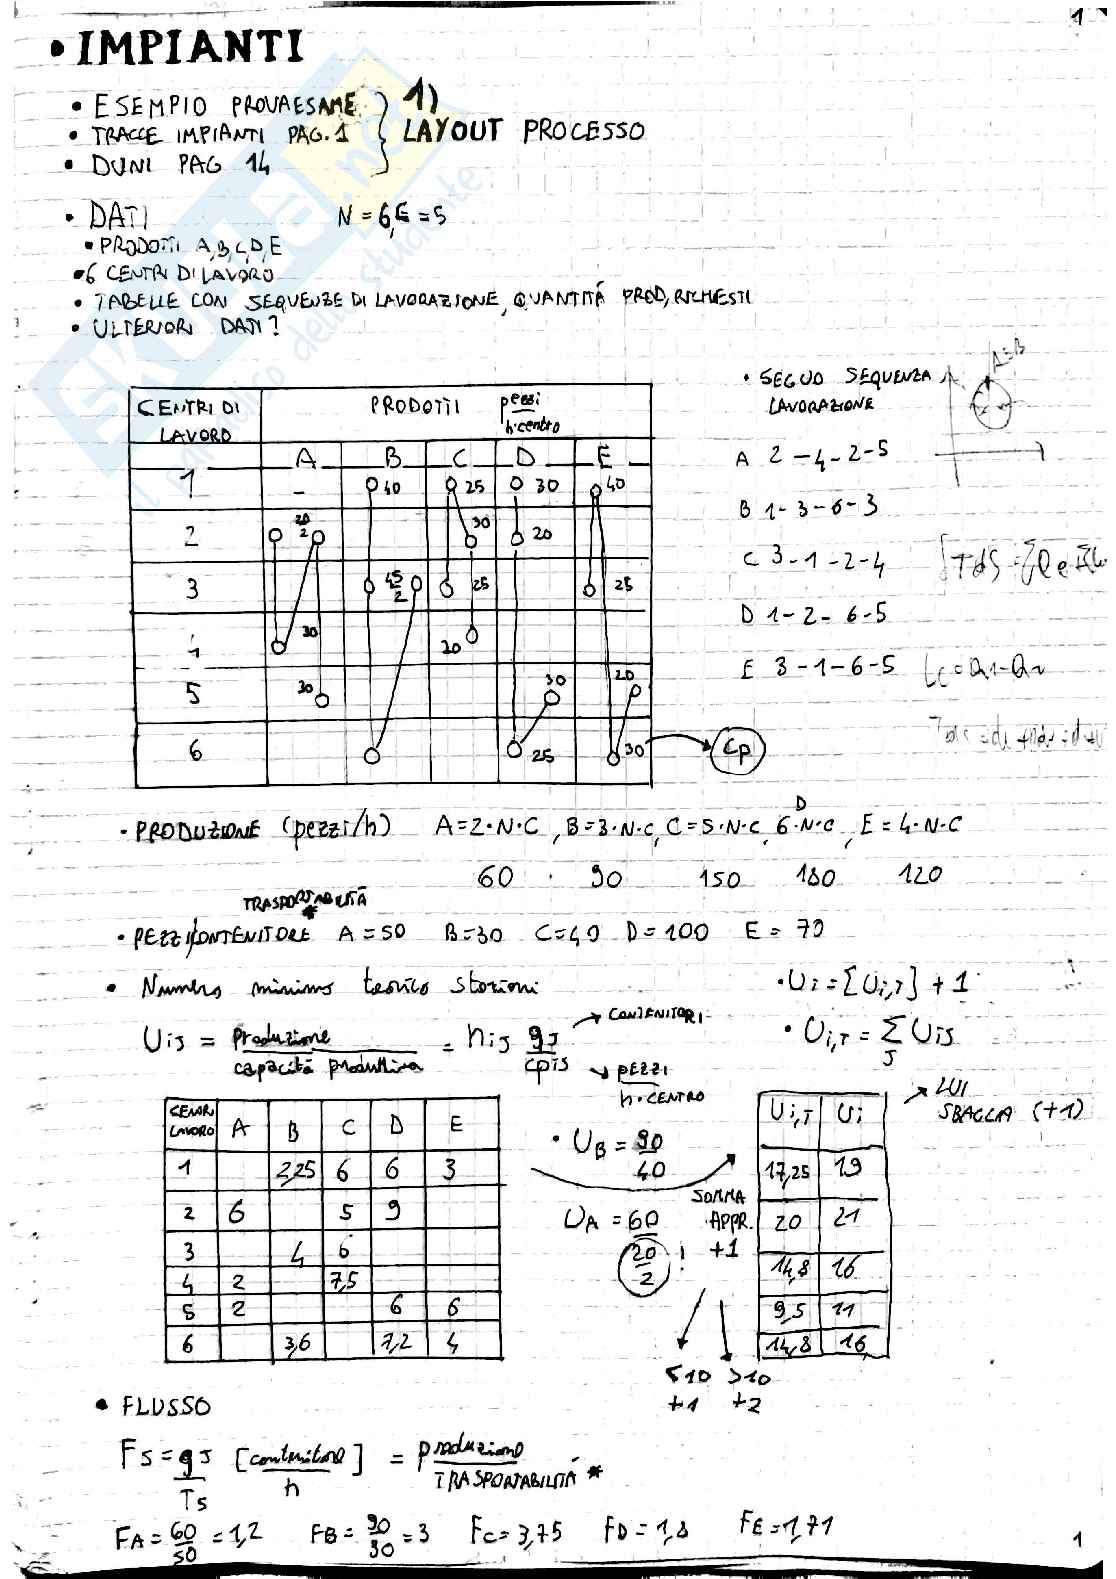 1
• IMPIANTI
• ESEMPIO PROVA ESAME
• TRACCE IMPIANTI PAG. 1
• DUNI PAG 14
1)
LAYOUT PROCESSO
• DATI N = 6, E = 5
• PRODOTTI A, B, C, D, E
• 6 CENTRI DI LAVORO
• TABELLE CON SEQUENZE DI LAVORAZIONE, QUANTITÁ PROD, RICHIESTI
• ULTERIORI DATI?
CENTRI DI LAVORO PRODOTTI pezzi/h·centro
A B C D E
1 – 40 25 30 40
2 20/2 30 20
3 45/2 25 25
4 30 20
5 30 30 20
6 25 30 Cp
• SEGUO SEQUENZA
LAVORAZIONE
A=B
A 2 – 4 – 2 – 5
B 1 – 3 – 6 – 3
C 3 – 1 – 2 – 4
D 1 – 2 – 6 – 5
E 3 – 1 – 6 – 5
• PRODUZIONE (pezzi/h) A=2·N·C, B=3·N·C, C=5·N·C, D 6·N·C, E=4·N·C
60 90 150 180 120
TRASPORTABILITÁ
*
• PEZZI/CONTENITORE A=50 B=30 C=40 D=100 E=70
• Numero minimo teorico stazioni
Uis = Produzione/capacitá produttiva = nis gs/cpis
→ CONTENITORI
→ PEZZI/h·CENTRO
• Ui = [Ui,T] + 1
• Ui,T = Σ Uis
J
→ LUI
SBAGLIA (+1)
CENTRI LAVORO A B C D E
1 2,25 6 6 3
2 6 5 9
3 4 6
4 2 7,5
5 2 6 6
6 3,6 7,2 4
• UB = 90/40
UA = 60/(20/2) !
SOMMA
APPR.
+1
<10 >10
+1 +2
Ui,T Ui
17,25 19
20 21
14,8 16
9,5 11
14,8 16
• FLUSSO
Fs = gs/Ts [contenitore/h] = produzione/TRASPORTABILITÁ *
FA = 60/50 = 1,2 FB = 90/30 = 3 FC = 3,75 FD = 1,8 FE = 1,71
1